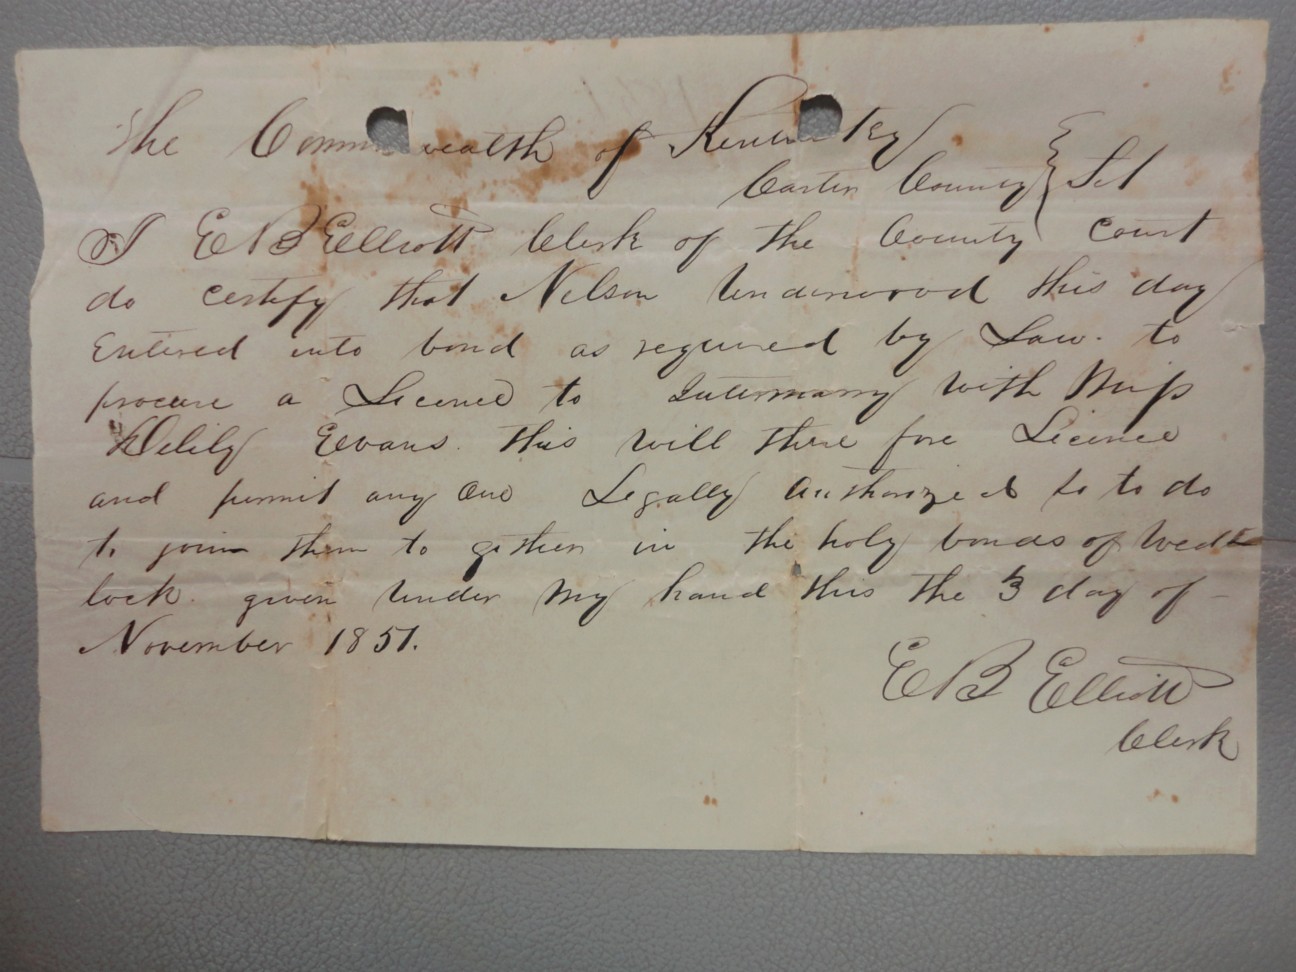 The Commonwealth of Kentucky
Carter County } Sct
I E B Elliott Clerk of the County Court
do certify that Nelson Underwood this day
Entered into bond as required by Law. to
procure a Licence to Intermarry with Miss
Delily Evans. this will there fore Licence
and permit any one Legally Authorized so to do
to join them to gether in the holy bonds of Wed
lock. given under my hand this the 3 day of
November 1851.
E B Elliott
Clerk